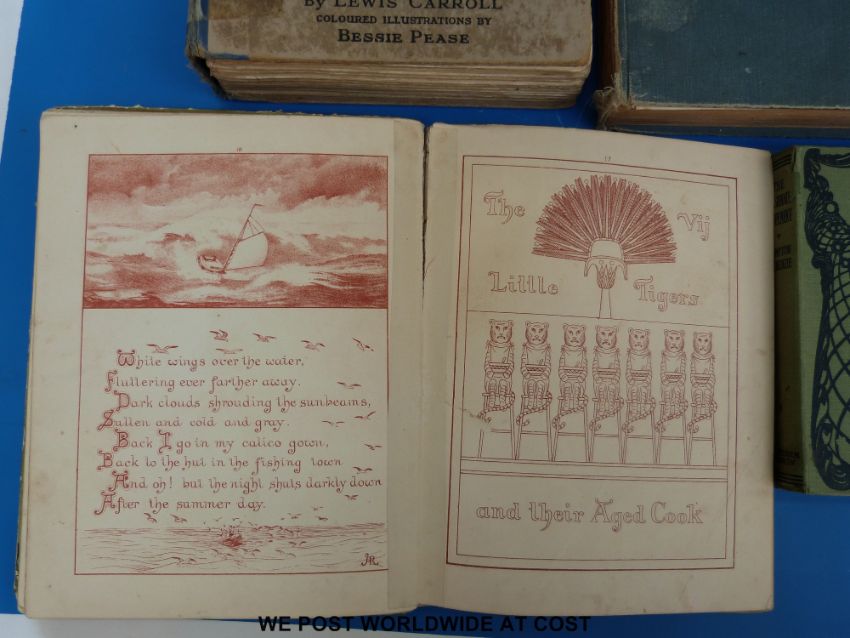 by Lewis Carroll
COLOURED ILLUSTRATIONS BY
BESSIE PEASE
16
White wings over the water,
Fluttering ever farther away.
Dark clouds shrouding the sunbeams,
Sullen and cold and gray.
Back I go in my calico gown,
Back to the hut in the fishing town
And oh! but the night shuts darkly down
After the summer day.
17
The Vij
Little Tigers
and their Aged Cook
WE POST WORLDWIDE AT COST